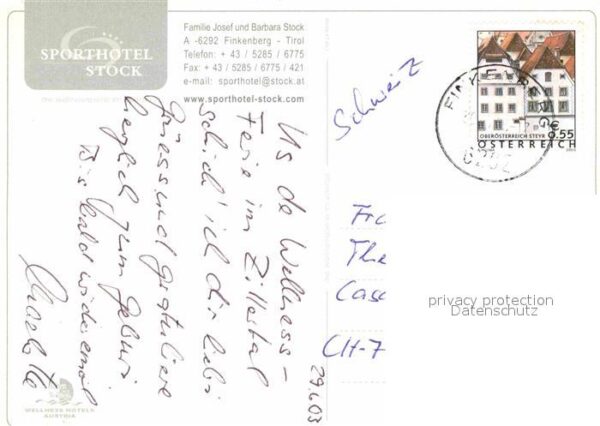 SPORTHOTEL
STOCK
Familie Josef und Barbara Stock
A -6292 Finkenberg - Tirol
Telefon: + 43 / 5285 / 6775
Fax: + 43 / 5285 / 6775 / 421
e-mail: sporthotel@stock.at
www.sporthotel-stock.com
Us de Wellness-
Ferie im Zillertal
schick' ich dir liebi
Grüess und gratuliere
herzlich zum Geburi.
Bis bald wider emal
29.4.03
Schweiz
FINKENBERG
OBERÖSTERREICH STEYR
€ 0,55
ÖSTERREICH
Fr
The
Cas
CH-7
privacy protection
Datenschutz
WELLNESS HOTELS
AUSTRIA